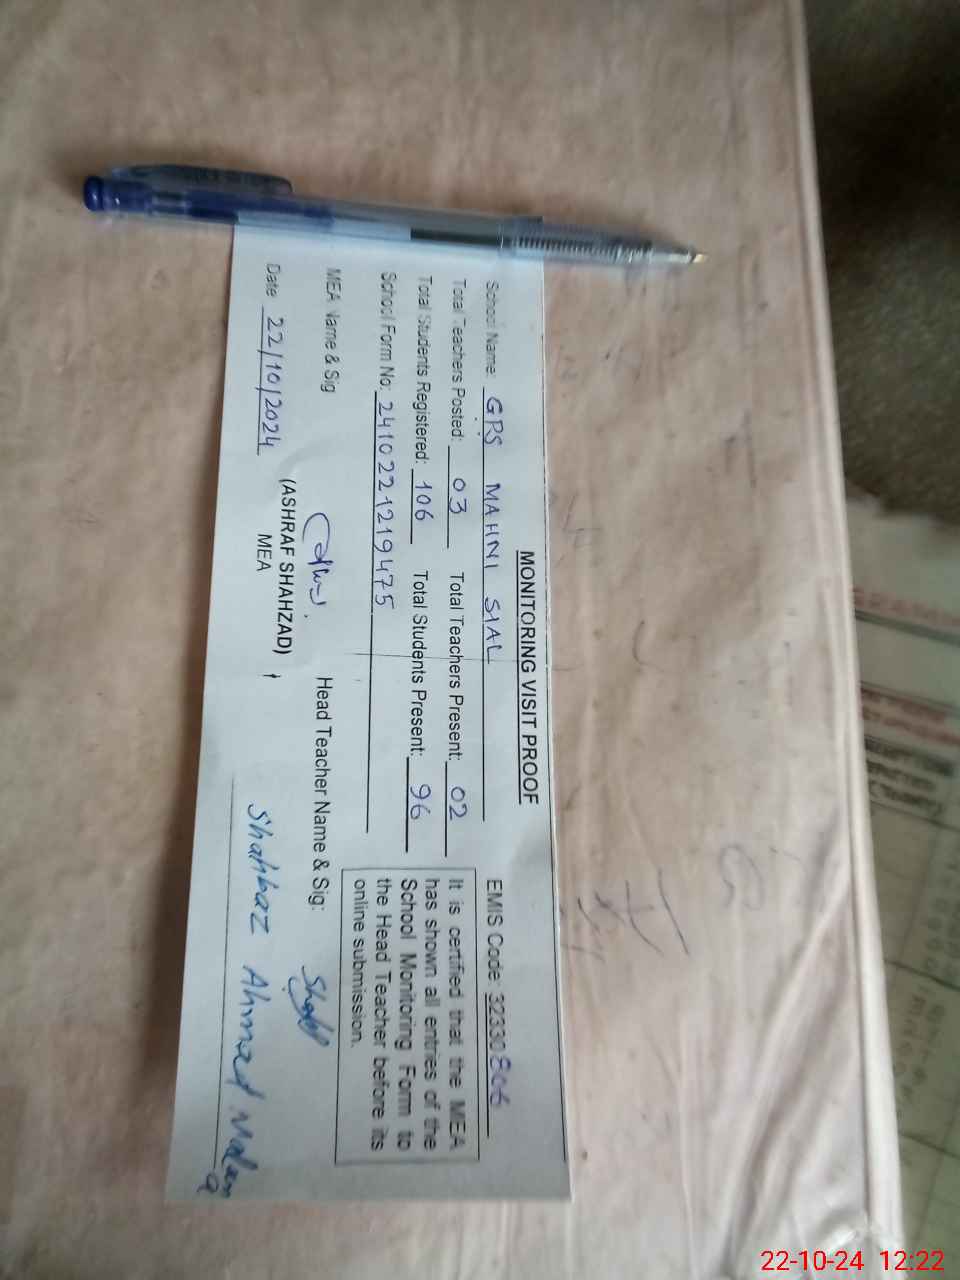 MONITORING VISIT PROOF
School Name: GPS MAHNI SIAL EMIS Code: 32330806
Total Teachers Posted: 03 Total Teachers Present: 02
Total Students Registered: 106 Total Students Present: 96
School Form No: 2410221219475
It is certified that the MEA
has shown all entries of the
School Monitoring Form to
the Head Teacher before its
online submission.
MEA Name & Sig
Head Teacher Name & Sig:
(ASHRAF SHAHZAD)
MEA
Date 22/10/2024
Shahbaz Ahmed
22-10-24 12:22